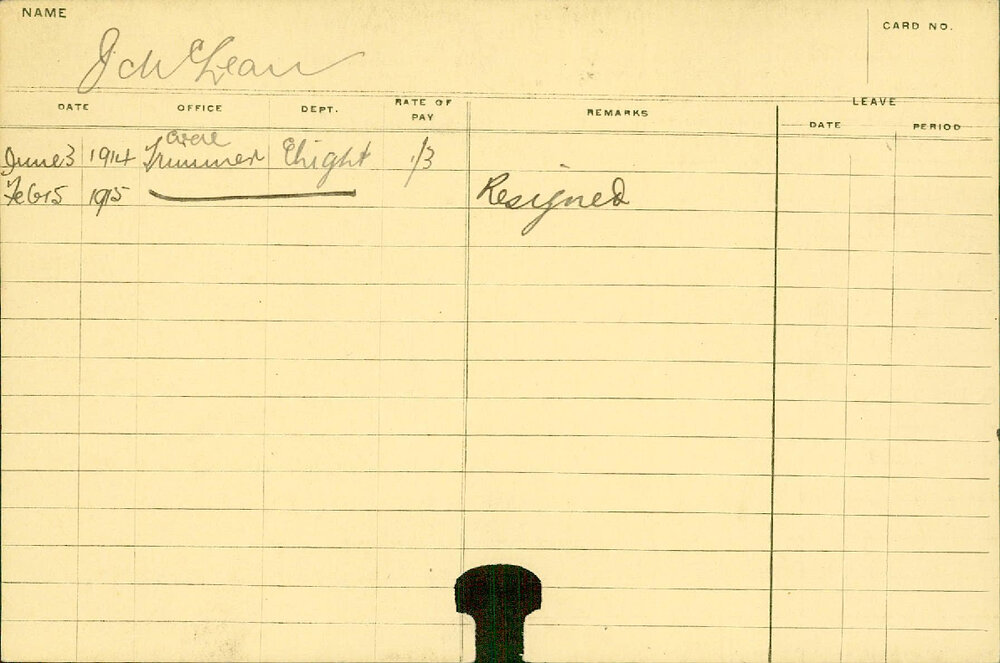 NAME
CARD NO.
J McLean
DATE OFFICE DEPT. RATE OF PAY REMARKS LEAVE
DATE PERIOD
June 3 1914 Trimmer 1/3
Feb 15 1915 Resigned